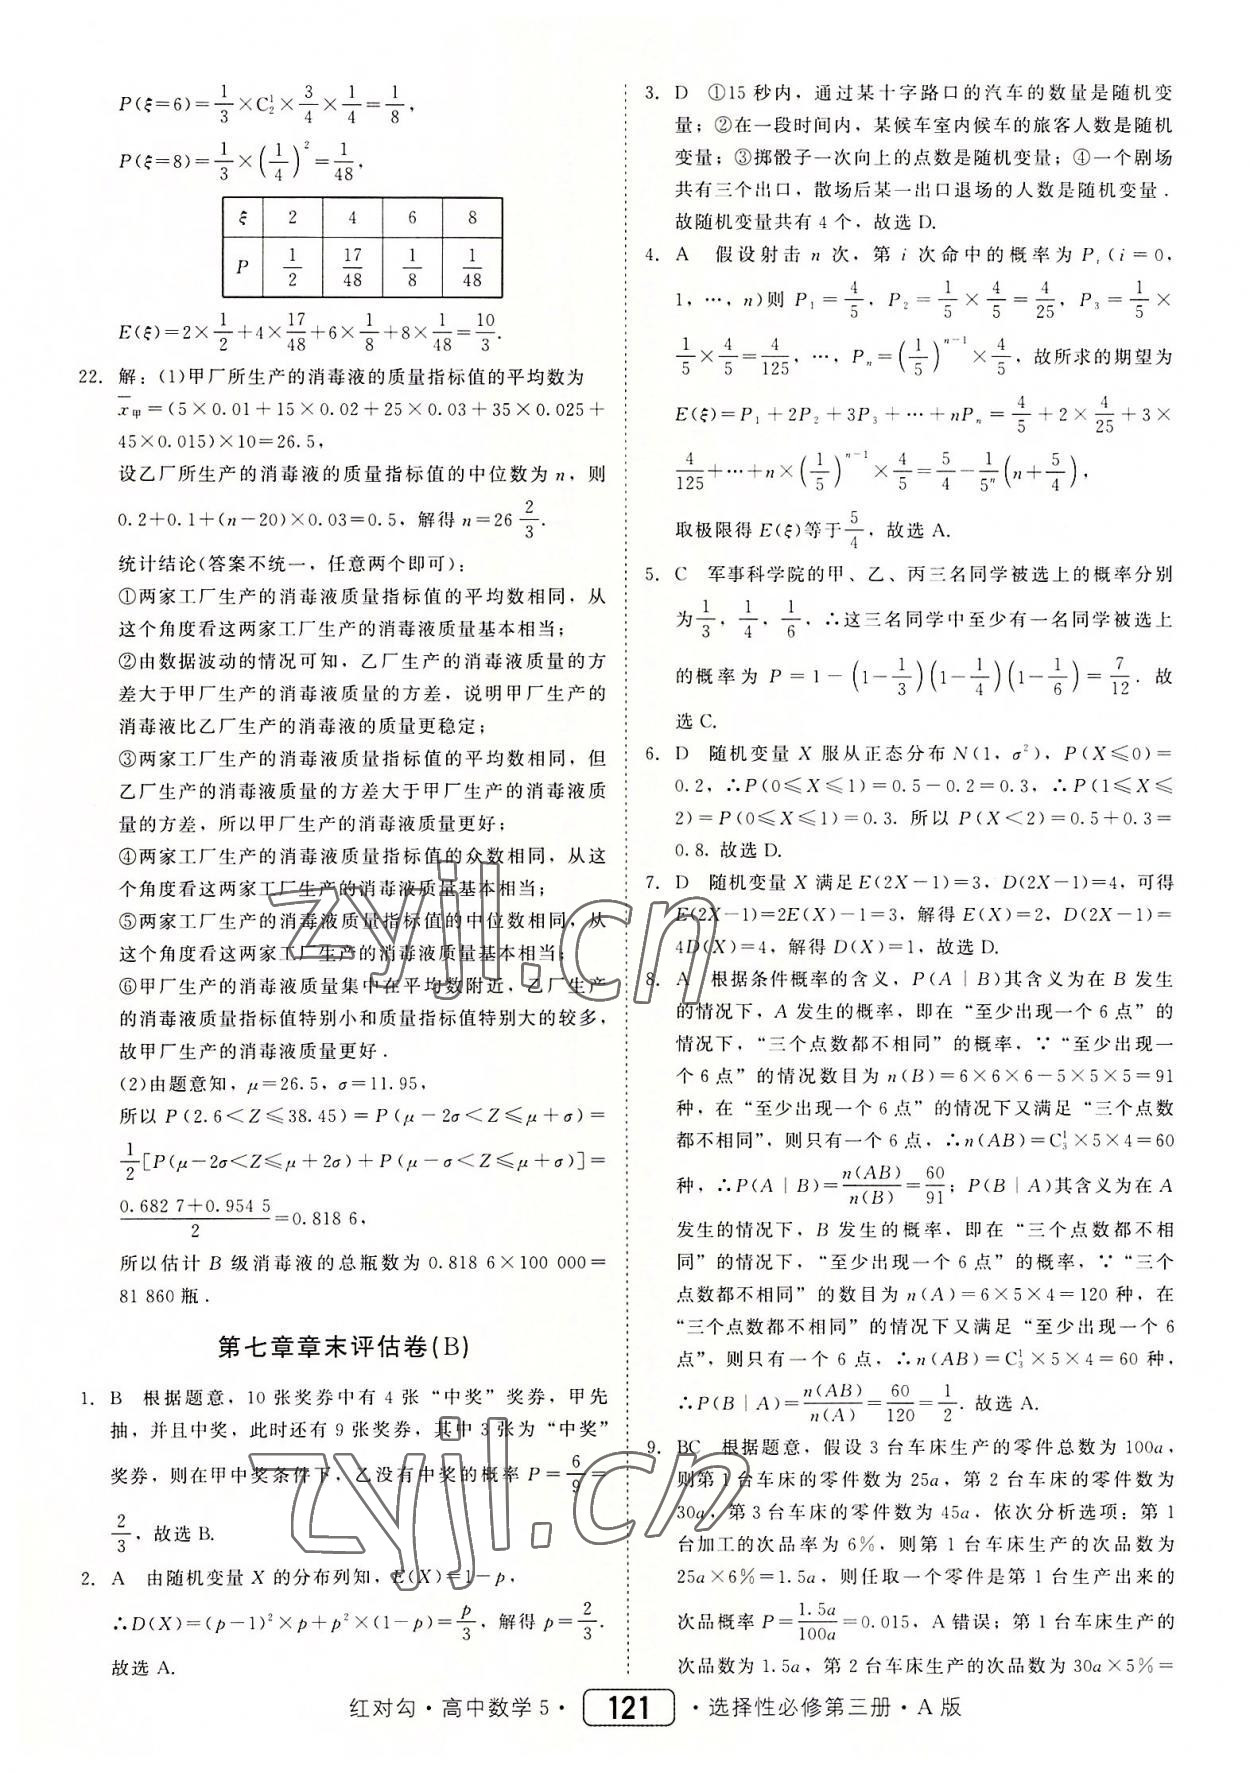 P(ξ=6)=1/3×C₂¹×3/4×1/4=1/8,
P(ξ=8)=1/3×(1/4)²=1/48,
ξ 2 4 6 8
P 1/2 17/48 1/8 1/48
E(ξ)=2×1/2+4×17/48+6×1/8+8×1/48=10/3.
22. 解:(1)甲厂所生产的消毒液的质量指标值的平均数为
x̄甲=(5×0.01+15×0.02+25×0.03+35×0.025+
45×0.015)×10=26.5,
设乙厂所生产的消毒液的质量指标值的中位数为 n,则
0.2+0.1+(n-20)×0.03=0.5,解得 n=26 2/3.
统计结论(答案不统一,任意两个即可):
①两家工厂生产的消毒液质量指标值的平均数相同,从
这个角度看这两家工厂生产的消毒液质量基本相当;
②由数据波动的情况可知,乙厂生产的消毒液质量的方
差大于甲厂生产的消毒液质量的方差,说明甲厂生产的
消毒液比乙厂生产的消毒液的质量更稳定;
③两家工厂生产的消毒液质量指标值的平均数相同,但
乙厂生产的消毒液质量的方差大于甲厂生产的消毒液质
量的方差,所以甲厂生产的消毒液质量更好;
④两家工厂生产的消毒液质量指标值的众数相同,从这
个角度看这两家工厂生产的消毒液质量基本相当;
⑤两家工厂生产的消毒液质量指标值的中位数相同,从
这个角度看这两家工厂生产的消毒液质量基本相当;
⑥甲厂生产的消毒液质量集中在平均数附近,乙厂生产
的消毒液质量指标值特别小和质量指标值特别大的较多,
故甲厂生产的消毒液质量更好.
(2)由题意知,μ=26.5,σ=11.95,
所以 P(2.6<Z≤38.45)=P(μ-2σ<Z≤μ+σ)=
1/2[P(μ-2σ<Z≤μ+2σ)+P(μ-σ<Z≤μ+σ)]=
(0.682 7+0.954 5)/2=0.818 6,
所以估计 B 级消毒液的总瓶数为 0.818 6×100 000=
81 860 瓶.
第七章章末评估卷(B)
1. B 根据题意,10 张奖券中有 4 张“中奖”奖券,甲先
抽,并且中奖,此时还有 9 张奖券,其中 3 张为“中奖”
奖券,则在甲中奖条件下,乙没有中奖的概率 P=6/9=
2/3,故选 B.
2. A 由随机变量 X 的分布列知,E(X)=1-p,
∴D(X)=(p-1)²×p+p²×(1-p)=p/3,解得 p=2/3.
故选 A.
3. D ①15 秒内,通过某十字路口的汽车的数量是随机变
量;②在一段时间内,某候车室内候车的旅客人数是随机
变量;③掷骰子一次向上的点数是随机变量;④一个剧场
共有三个出口,散场后某一出口退场的人数是随机变量.
故随机变量共有 4 个,故选 D.
4. A 假设射击 n 次,第 i 次命中的概率为 Pᵢ(i=0,
1,…,n)则 P₁=4/5,P₂=1/5×4/5=4/25,P₃=1/5×
1/5×4/5=4/125,…,Pₙ=(1/5)ⁿ⁻¹×4/5,故所求的期望为
E(ξ)=P₁+2P₂+3P₃+…+nPₙ=4/5+2×4/25+3×
4/125+…+n×(1/5)ⁿ⁻¹×4/5=5/4-1/5ⁿ(n+5/4),
取极限得 E(ξ)等于5/4,故选 A.
5. C 军事科学院的甲、乙、丙三名同学被选上的概率分别
为1/3,1/4,1/6,∴这三名同学中至少有一名同学被选上
的概率为 P=1-(1-1/3)(1-1/4)(1-1/6)=7/12.故
选 C.
6. D 随机变量 X 服从正态分布 N(1,σ²),P(X≤0)=
0.2,∴P(0≤X≤1)=0.5-0.2=0.3,∴P(1≤X≤
2)=P(0≤X≤1)=0.3.所以 P(X<2)=0.5+0.3=
0.8.故选 D.
7. D 随机变量 X 满足 E(2X-1)=3,D(2X-1)=4,可得
E(2X-1)=2E(X)-1=3,解得 E(X)=2,D(2X-1)=
4D(X)=4,解得 D(X)=1,故选 D.
8. A 根据条件概率的含义,P(A|B)其含义为在 B 发生
的情况下,A 发生的概率,即在“至少出现一个 6 点”的
情况下,“三个点数都不相同”的概率,∵“至少出现一
个 6 点”的情况数目为 n(B)=6×6×6-5×5×5=91
种,在“至少出现一个 6 点”的情况下又满足“三个点数
都不相同”,则只有一个 6 点,∴n(AB)=C₃¹×5×4=60
种,∴P(A|B)=n(AB)/n(B)=60/91;P(B|A)其含义为在 A
发生的情况下,B 发生的概率,即在“三个点数都不相
同”的情况下,“至少出现一个 6 点”的概率,∵“三个
点数都不相同”的数目为 n(A)=6×5×4=120 种,在
“三个点数都不相同”的情况下又满足“至少出现一个 6
点”,则只有一个 6 点,∴n(AB)=C₃¹×5×4=60 种,
∴P(B|A)=n(AB)/n(A)=60/120=1/2.故选 A.
9. BC 根据题意,假设 3 台车床生产的零件总数为 100a,
则第 1 台车床的零件数为 25a,第 2 台车床的零件数为
30a,第 3 台车床的零件数为 45a,依次分析选项:第 1
台加工的次品率为 6%,则第 1 台车床生产的次品数为
25a×6%=1.5a,则任取一个零件是第 1 台生产出来的
次品概率 P=1.5a/100a=0.015,A 错误;第 1 台车床生产的
次品数为 1.5a,第 2 台车床生产的次品数为 30a×5%=
红对勾·高中数学 5· 121 ·选择性必修第三册·A 版
zyjl.cn
zyjl.cn